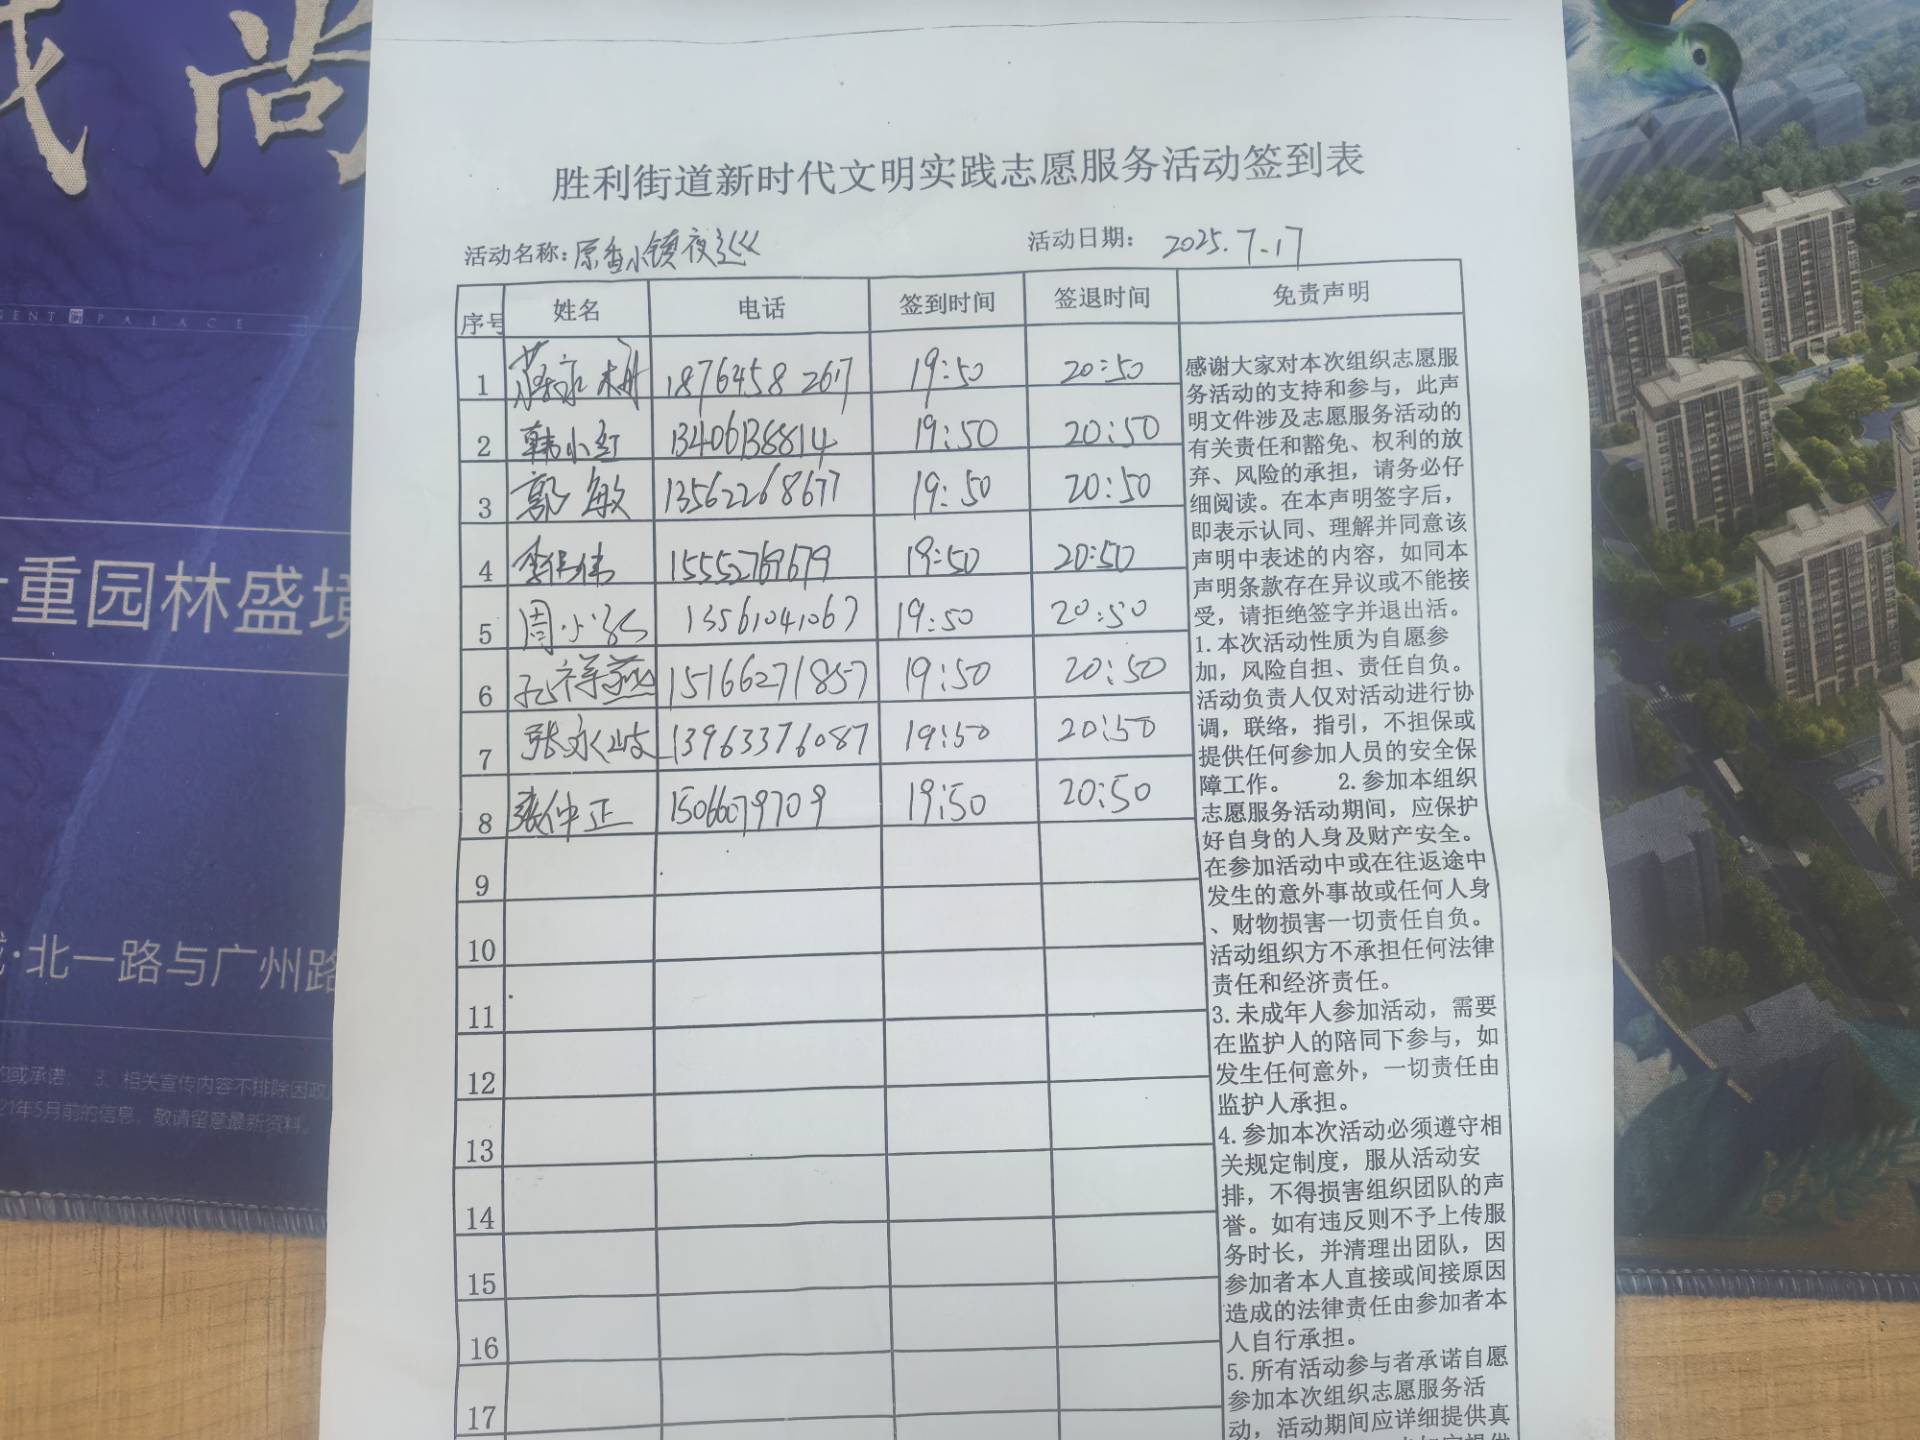 尚
GENT PALACE
重园林盛境
北一路与广州路
的或承诺； 3、相关宣传内容不排除因政
21年5月前的信息，敬请留意最新资料。
胜利街道新时代文明实践志愿服务活动签到表
活动名称：原香小镇夜巡 活动日期： 2025.7.17
序号 姓名 电话 签到时间 签退时间 免责声明
1 18764582617 19:50 20:50
2 韩小红 13406138814 19:50 20:50
3 郭敏 13562268677 19:50 20:50
4 李伟 15552769679 19:50 20:50
5 周小 13561041067 19:50 20:50
6 孔祥燕 15166271857 19:50 20:50
7 张永岐 13963376087 19:50 20:50
8 张仲正 15066079709 19:50 20:50
9
10
11
12
13
14
15
16
17
感谢大家对本次组织志愿服
务活动的支持和参与，此声
明文件涉及志愿服务活动的
有关责任和豁免、权利的放
弃、风险的承担，请务必仔
细阅读。在本声明签字后，
即表示认同、理解并同意该
声明中表述的内容，如同本
声明条款存在异议或不能接
受，请拒绝签字并退出活。
1.本次活动性质为自愿参
加，风险自担、责任自负。
活动负责人仅对活动进行协
调，联络，指引，不担保或
提供任何参加人员的安全保
障工作。 2.参加本组织
志愿服务活动期间，应保护
好自身的人身及财产安全。
在参加活动中或在往返途中
发生的意外事故或任何人身
、财物损害一切责任自负。
活动组织方不承担任何法律
责任和经济责任。
3.未成年人参加活动，需要
在监护人的陪同下参与，如
发生任何意外，一切责任由
监护人承担。
4.参加本次活动必须遵守相
关规定制度，服从活动安
排，不得损害组织团队的声
誉。如有违反则不予上传服
务时长，并清理出团队，因
参加者本人直接或间接原因
造成的法律责任由参加者本
人自行承担。
5.所有活动参与者承诺自愿
参加本次组织志愿服务活
动，活动期间应详细提供真